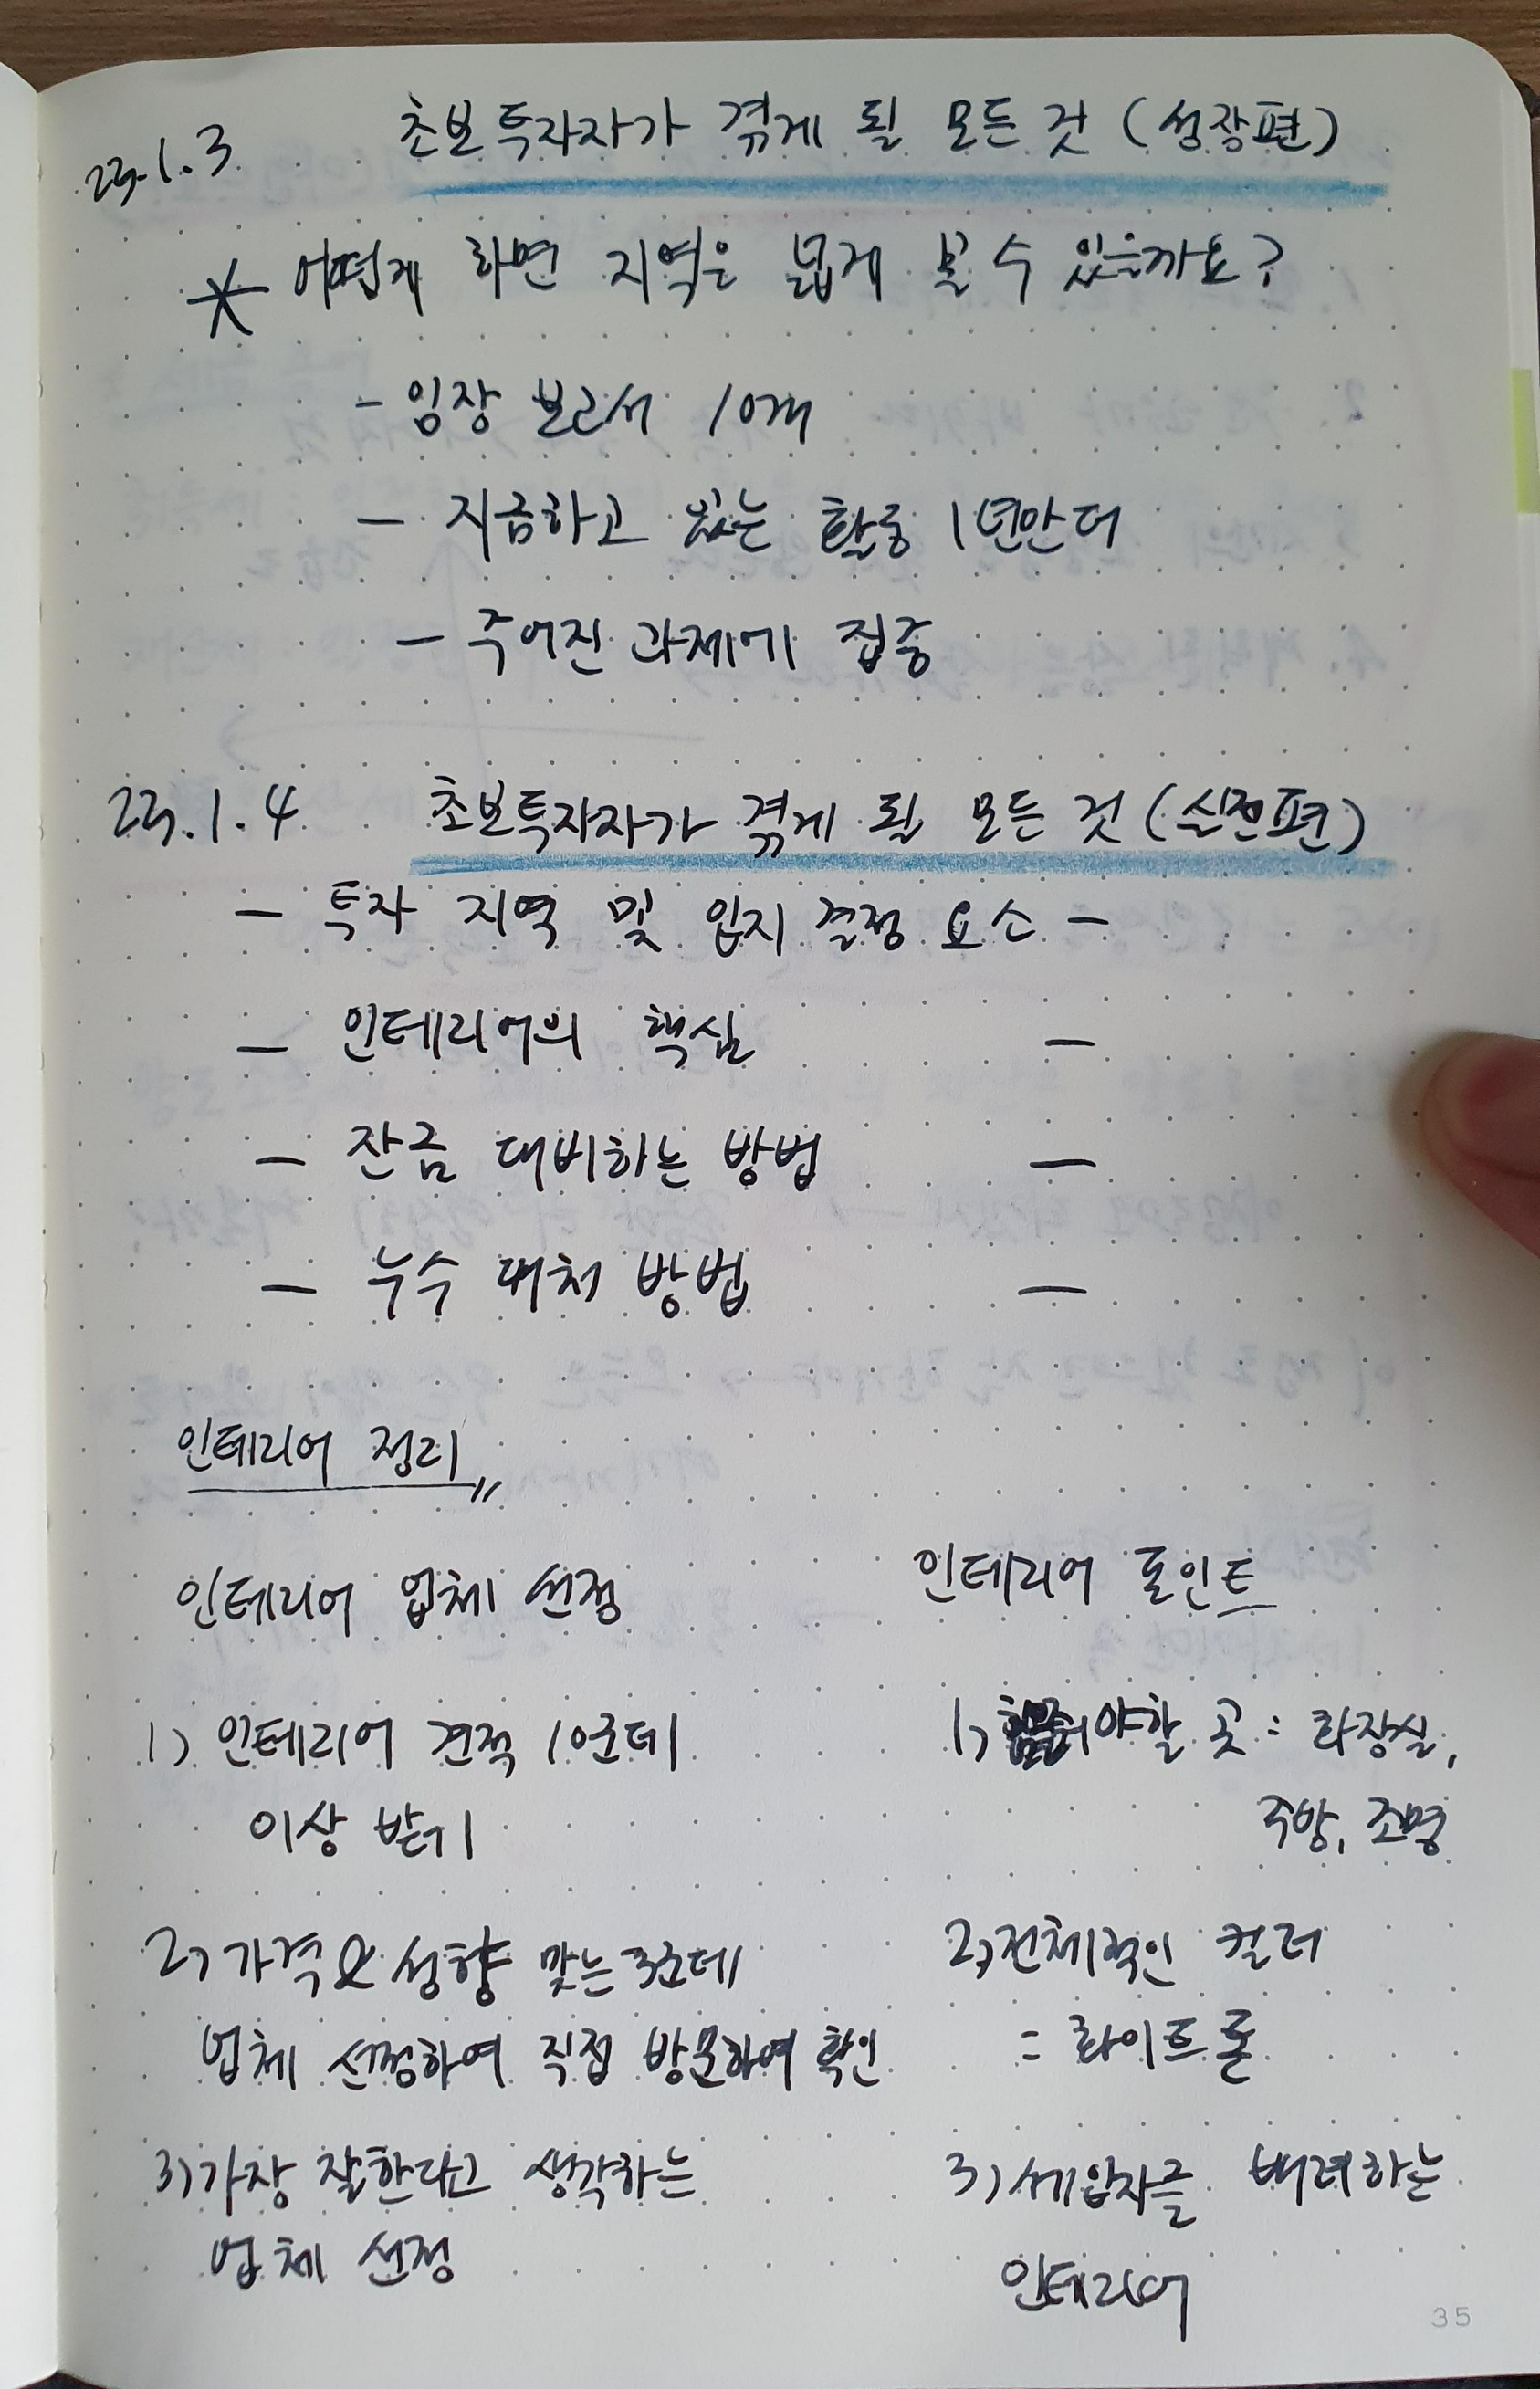 23.1.3 초보투자자가 겪게 될 모든 것 (성장편)
* 어떻게 하면 지역을 넓게 볼 수 있을까요?
- 임장 보고서 10개
- 지금하고 있는 활동 1년만 더
- 주어진 과제에 집중
23.1.4 초보투자자가 겪게 될 모든 것 (실전편)
- 투자 지역 및 입지 결정 요소 -
- 인테리어의 핵심 -
- 잔금 대비하는 방법 -
- 누수 대처 방법 -
인테리어 정리 〃
인테리어 업체 선정
1) 인테리어 견적 10군데
이상 받기
2) 가격 & 성향 맞는 3군데
업체 선정하여 직접 방문하여 확인
3) 가장 잘한다고 생각하는
업체 선정
인테리어 포인트
1) 힘줘야할 곳 : 화장실,
주방, 조명
2) 전체적인 컬러
= 화이트 톤
3) 세입자를 배려하는
인테리어
35